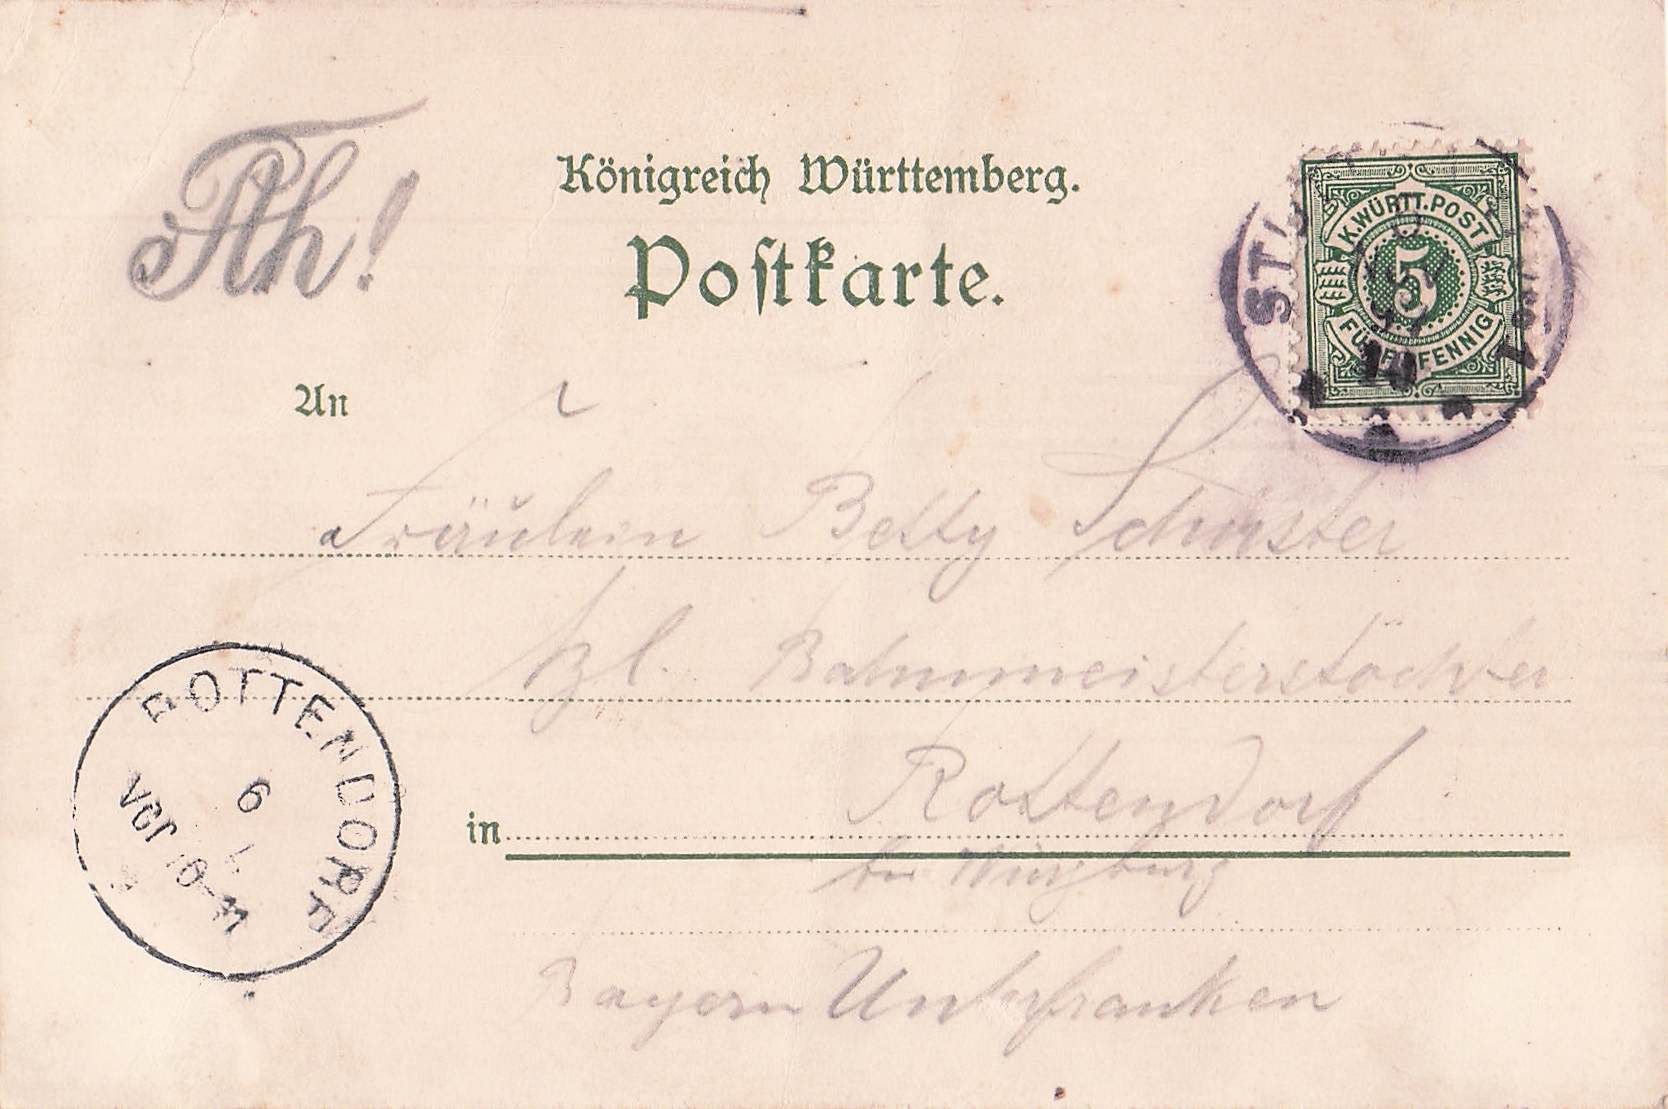 Ah!
Königreich Württemberg.
Postkarte.
K.WÜRTT.POST
5
FÜNF PFENNIG
An
Fräulein Betty Schuster
kgl. Bahnmeisterstochter
in Rottendorf
bei Würzburg
Bayern Unterfranken
ROTTENDORF
6